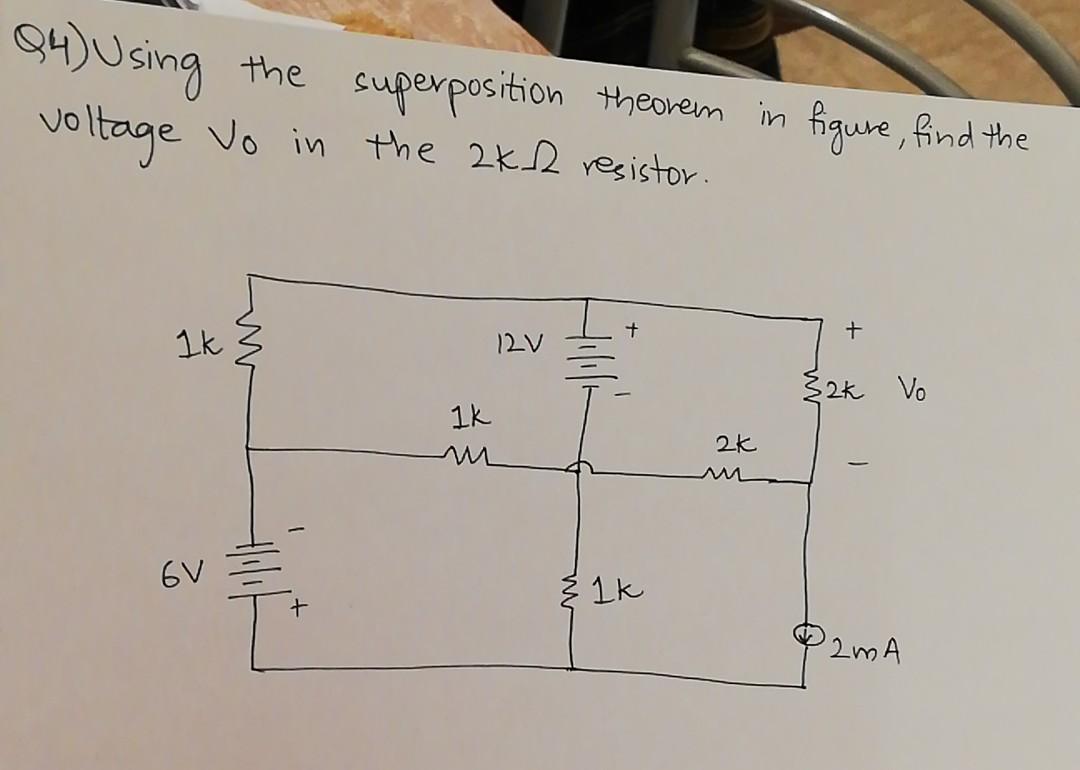 Q4) Using the superposition theorem in figure, find the
voltage Vo in the 2kΩ resistor.
1k
12V
+
-
+
2k Vo
-
1k
2k
6V
-
+
1k
2mA